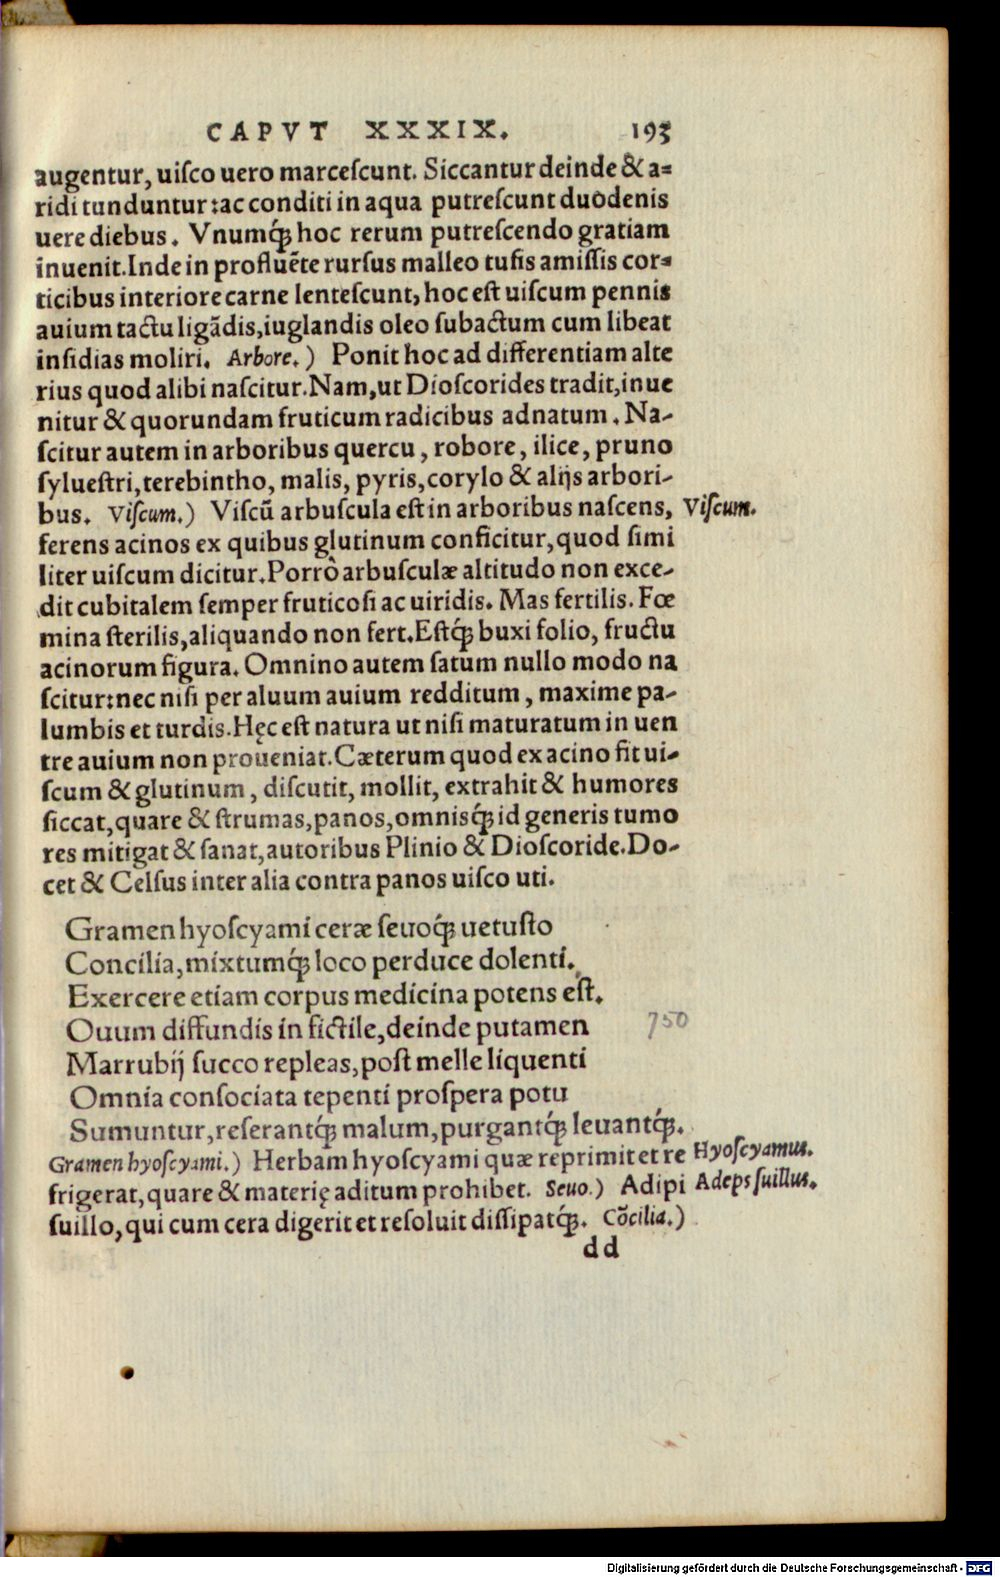 CAPVT XXXIX. 193
augentur, uiſco uero marceſcunt. Siccantur deinde & a⸗
ridi tunduntur:ac conditi in aqua putreſcunt duodenis
uere diebus. Vnumq́ꝫ hoc rerum putreſcendo gratiam
inuenit.Inde in profluẽte rurſus malleo tuſis amiſſis cor⸗
ticibus interiore carne lenteſcunt, hoc eſt uiſcum pennis
auium tactu ligãdis,iuglandis oleo ſubactum cum libeat
inſidias moliri. Arbore.) Ponit hoc ad differentiam alte
rius quod alibi naſcitur.Nam,ut Dioſcorides tradit,inue
nitur & quorundam fruticum radicibus adnatum. Na-
ſcitur autem in arboribus quercu, robore, ilice, pruno
ſylueſtri,terebintho, malis, pyris,corylo & alijs arbori-
bus. Viſcum.) Viſcũ arbuſcula eſt in arboribus naſcens, Viſcum.
ferens acinos ex quibus glutinum conficitur,quod ſimi
liter uiſcum dicitur.Porrò arbuſculæ altitudo non exce-
dit cubitalem ſemper fruticoſi ac uiridis. Mas fertilis. Fœ
mina ſterilis,aliquando non fert.Eſtq́ꝫ buxi folio, fructu
acinorum figura. Omnino autem ſatum nullo modo na
ſcitur:nec niſi per aluum auium redditum, maxime pa-
lumbis et turdis.Hęc eſt natura ut niſi maturatum in uen
tre auium non proueniat.Cæterum quod ex acino fit ui-
ſcum & glutinum, diſcutit, mollit, extrahit & humores
ſiccat,quare & ſtrumas,panos,omnisq́ꝫ id generis tumo
res mitigat & ſanat,autoribus Plinio & Dioſcoride.Do-
cet & Celſus inter alia contra panos uiſco uti.
Gramen hyoſcyami ceræ ſeuoq́ꝫ uetuſto
Concilia,mixtumq́ꝫ loco perduce dolenti.
Exercere etiam corpus medicina potens eſt.
Ouum diffundis in fictile,deinde putamen 750
Marrubij ſucco repleas,poſt melle liquenti
Omnia conſociata tepenti proſpera potu
Sumuntur,reſerantq́ꝫ malum,purgantq́ꝫ leuantq́ꝫ.
Gramen hyoſcyami.) Herbam hyoſcyami quæ reprimit et re Hyoſcyamus.
frigerat,quare & materię aditum prohibet. Seuo.) Adipi Adeps ſuillus.
ſuillo,qui cum cera digerit et reſoluit diſſipatq́ꝫ. Cõcilia.)
dd
Digitalisierung gefördert durch die Deutsche Forschungsgemeinschaft - DFG